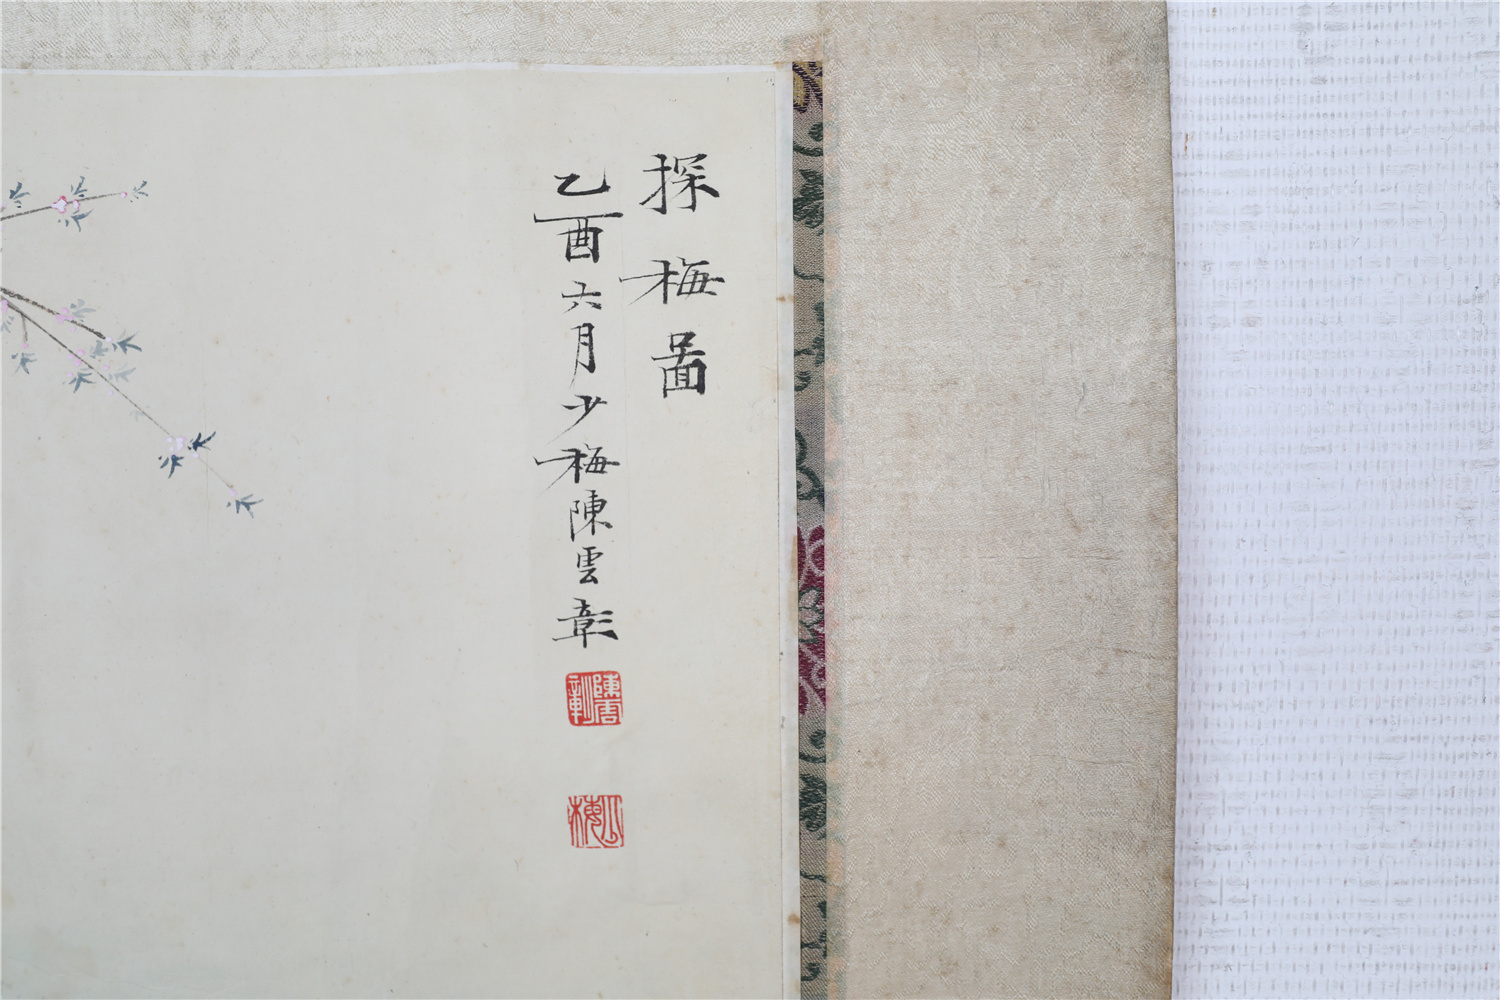 探梅啚
乙酉六月少梅陳雲彰
陳雲彰
少梅